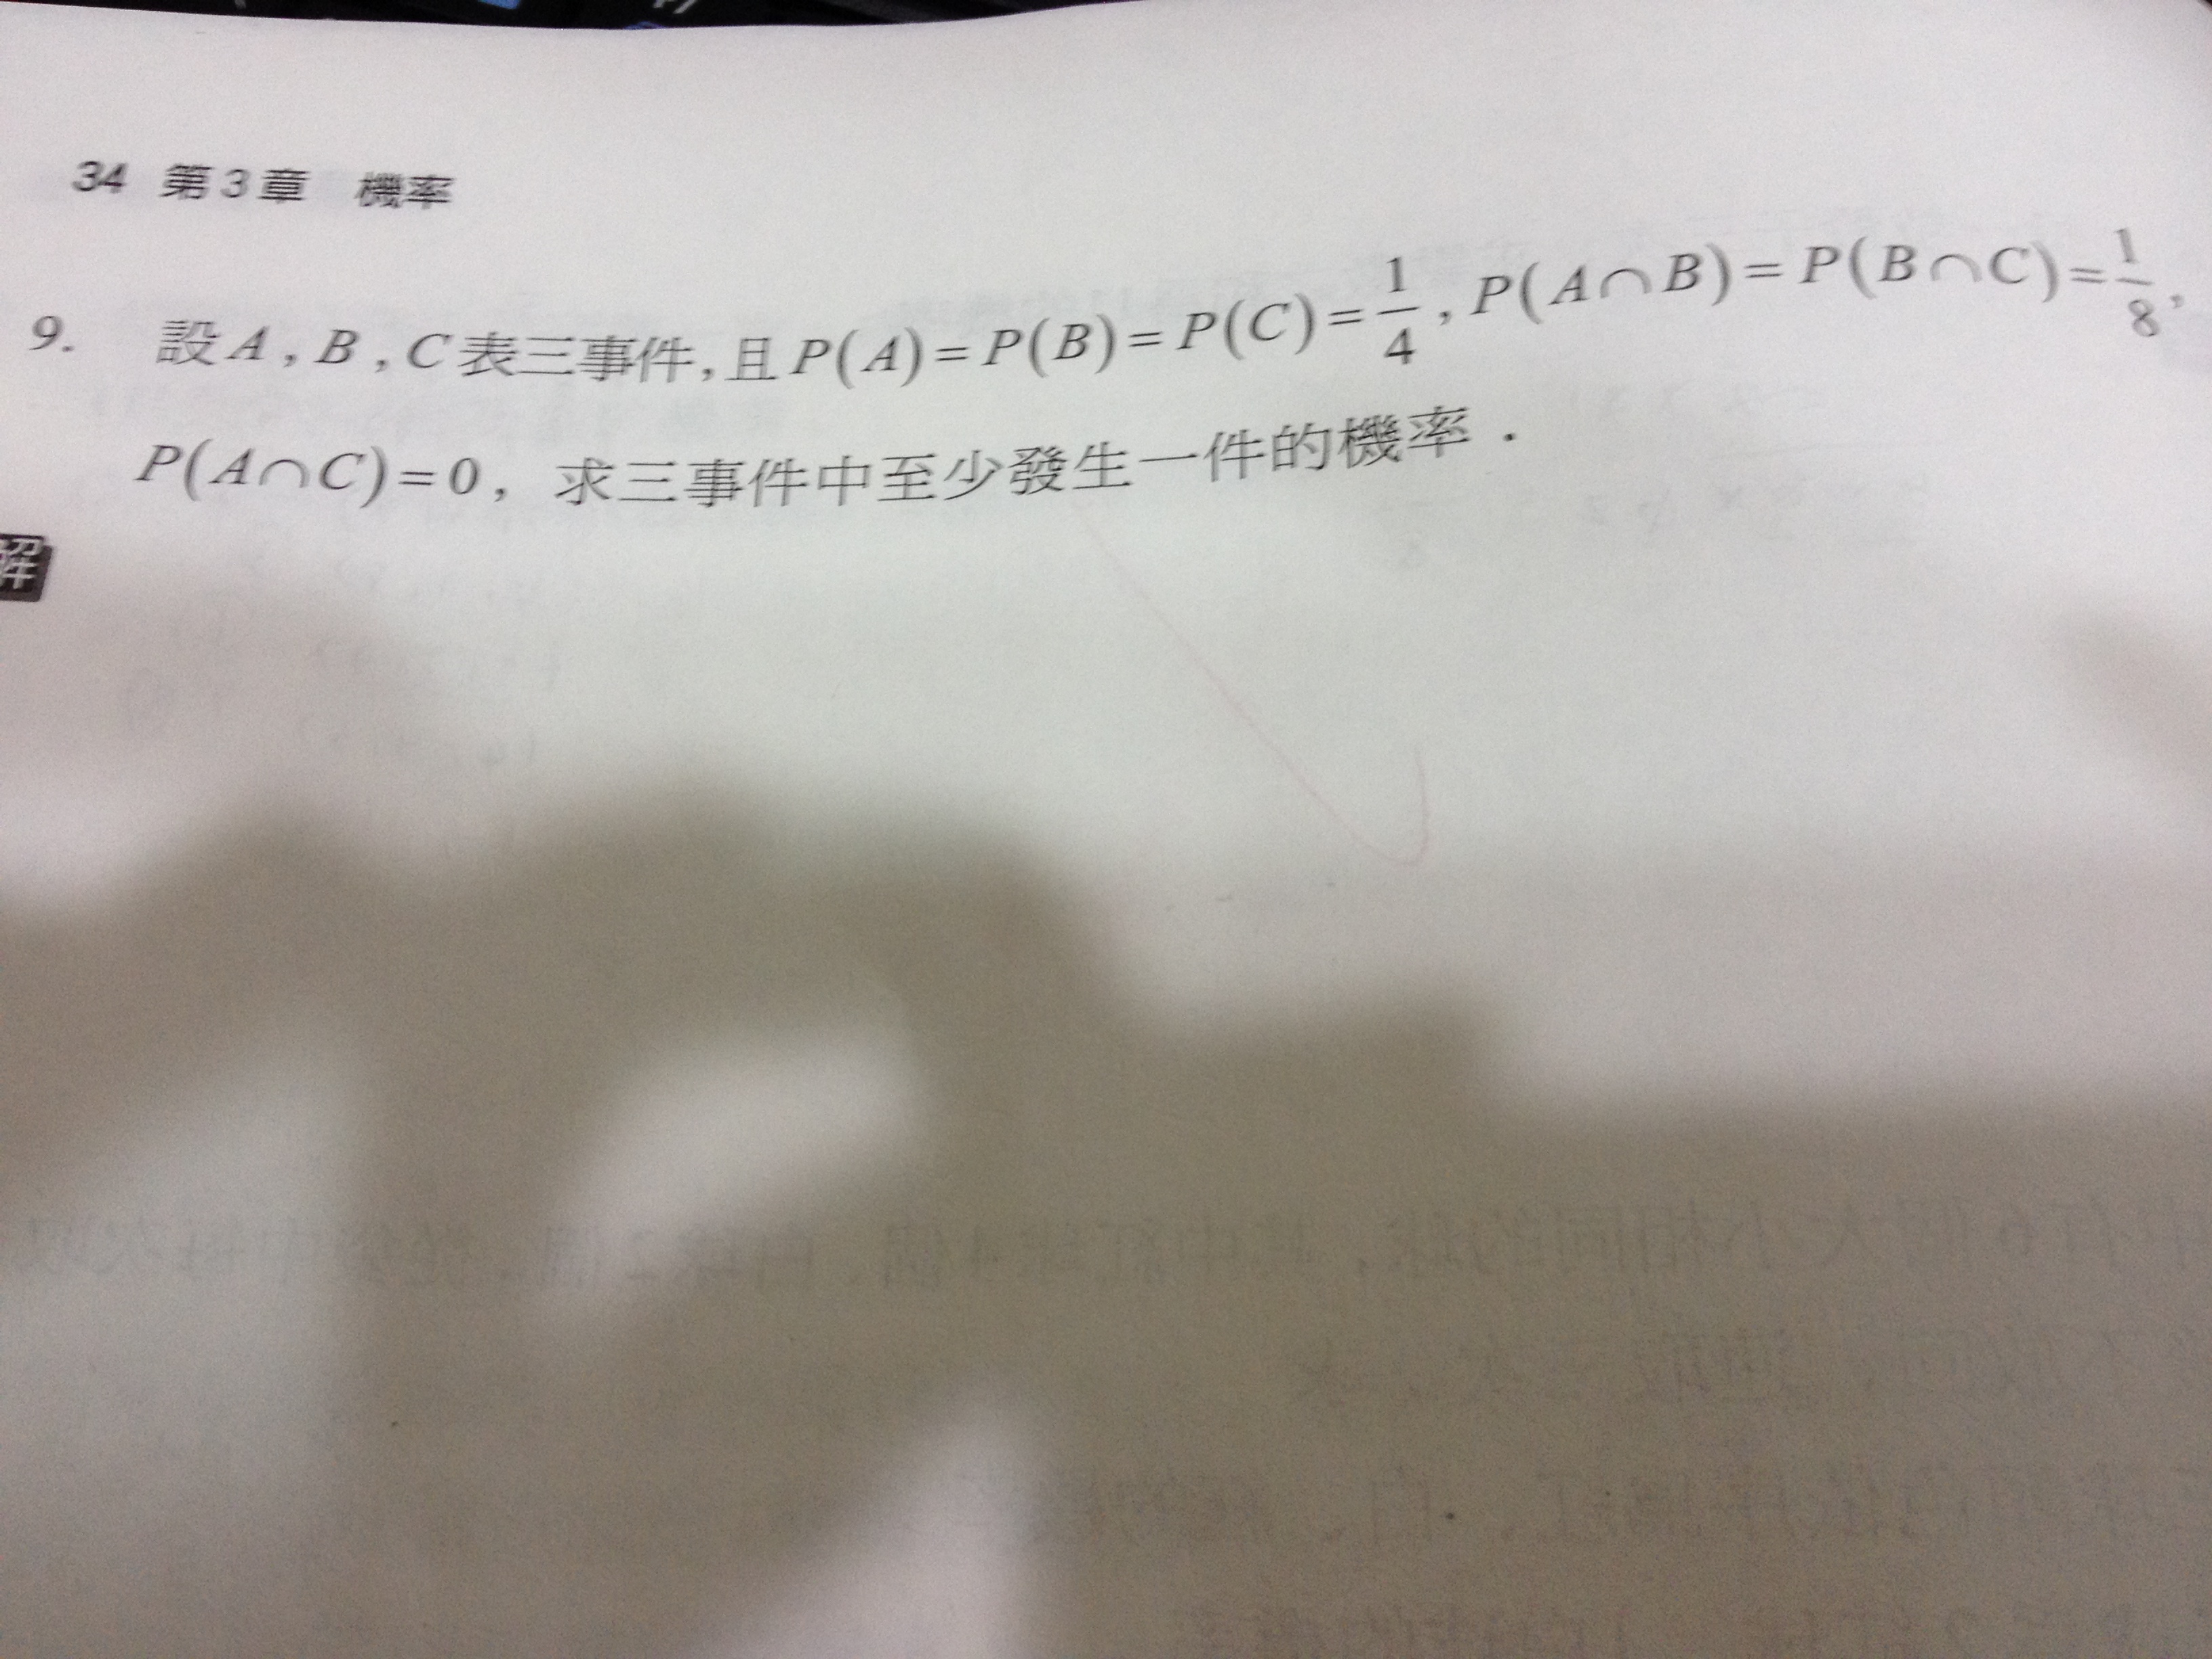 34 第3章 機率
9. 設A,B,C表三事件,且P(A)=P(B)=P(C)=1/4,P(A∩B)=P(B∩C)=1/8,
P(A∩C)=0,求三事件中至少發生一件的機率.
解